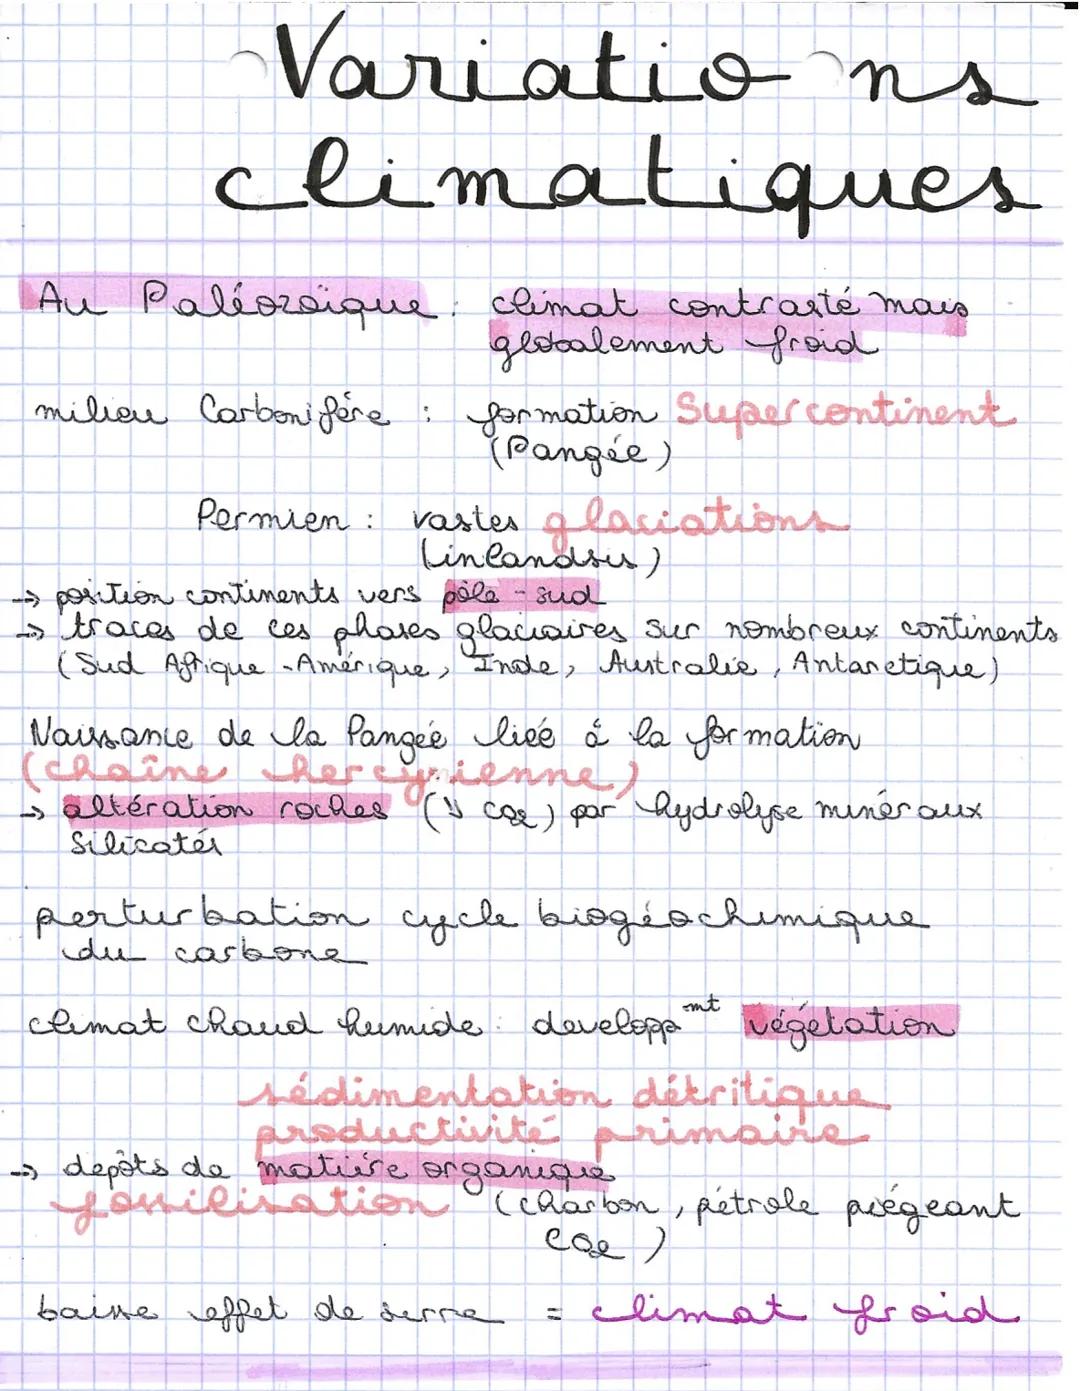 Variations
climatiques
Au Paléozoïque : climat contrasté mais
globalement froid
milieu Carbonifère : formation Supercontinent
(Pangée)
Permien : vastes glaciations
(inlandsis)
→ position continents vers pôle-sud
→ traces de ces phases glaciaires sur nombreux continents
(Sud Afrique - Amérique, Inde, Australie, Antarctique)
Naissance de la Pangée liée à la formation
(chaîne hercynienne)
→ altération roches (↘ CO2) par hydrolyse minéraux
silicatés
perturbation cycle biogéochimique
du carbone
climat chaud humide : developpmt végétation
sédimentation détritique
productivité primaire
→ depôts de matière organique
fossilisation (charbon, pétrole piégeant
CO2)
baisse effet de serre = climat froid